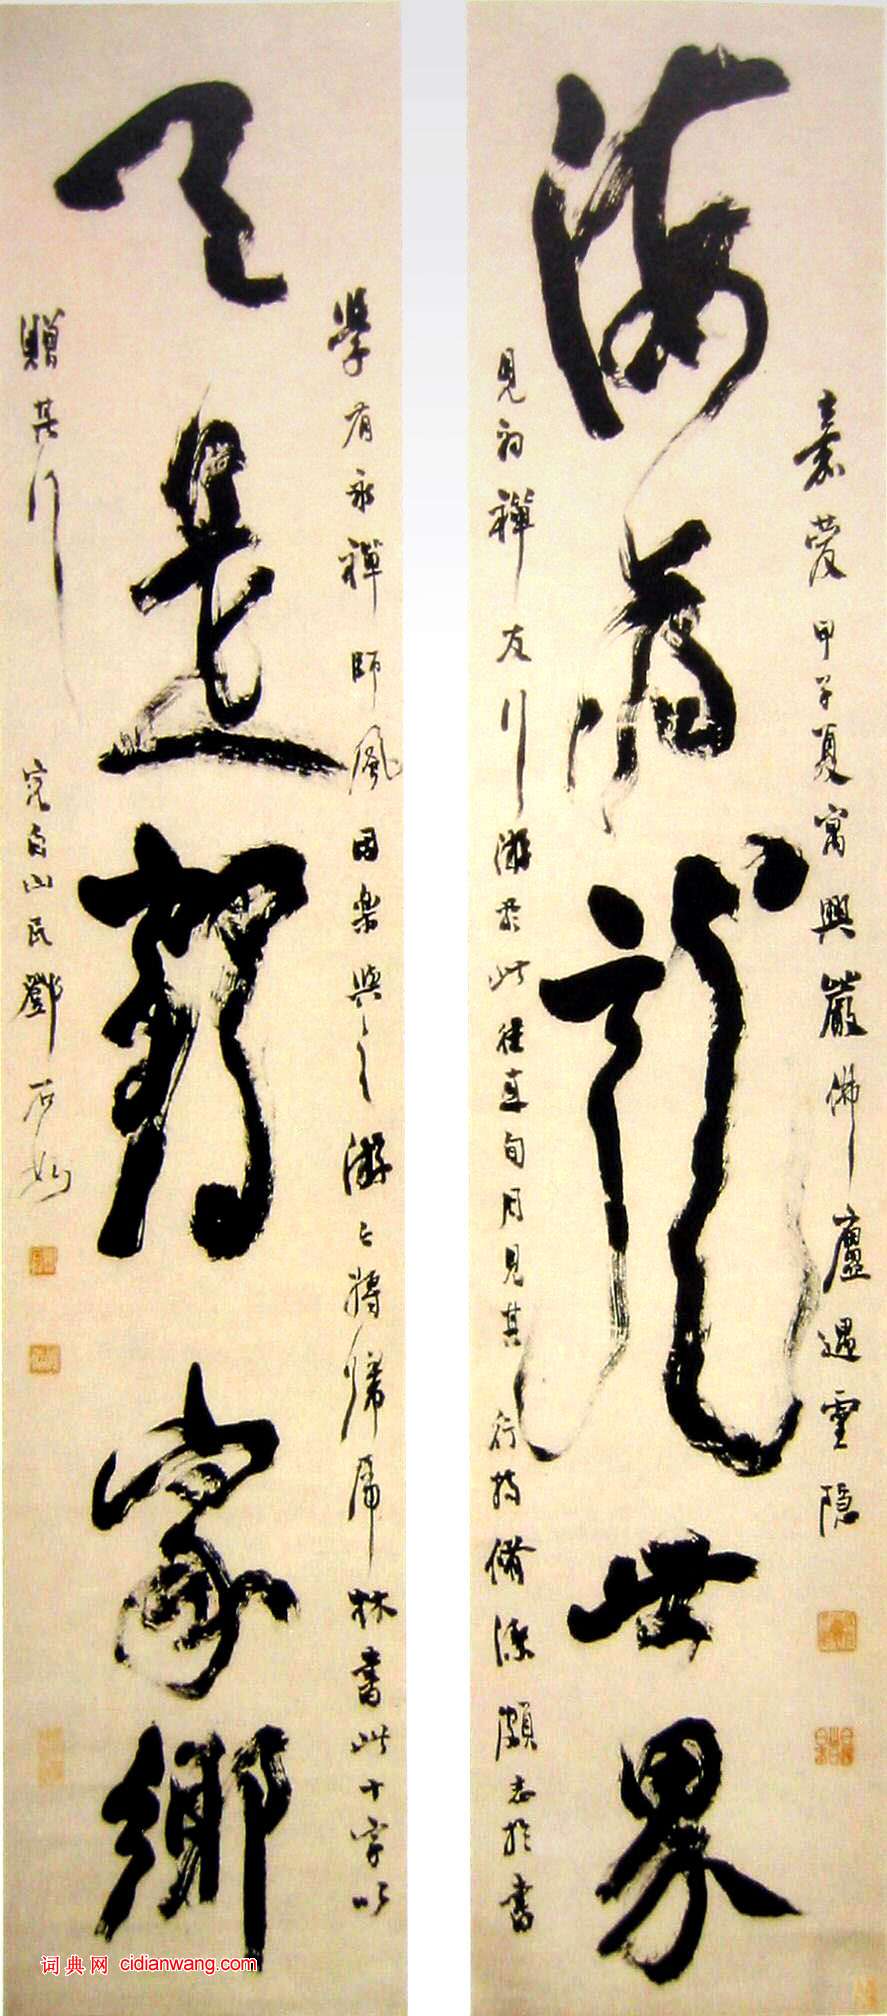 嘉慶甲子夏寓興嚴佛廬遇靈隱
海為龍世界
見初禪友行游於此旬月見其行持脩潔頗志於書
學有永禪師風因樂與之游將歸林書此十字以
天是鶴家鄉
贈其行
完白山民鄧石如
词典网 cidianwang.com